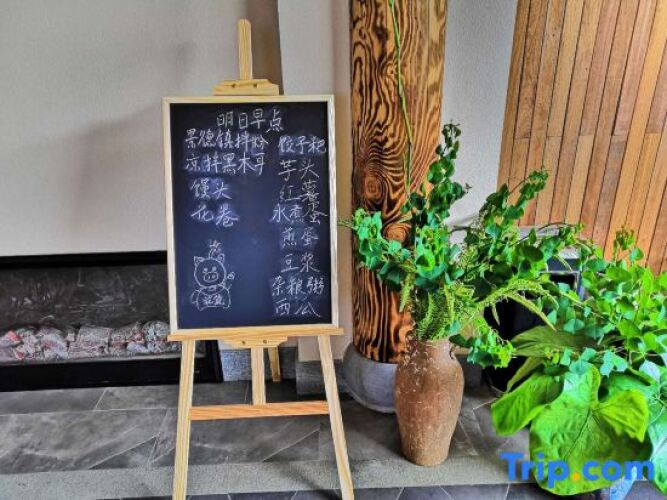 明日早点
景德镇拌粉
凉拌黑木耳
馒头
花卷
饺子粑
芋头
红薯
水煮蛋
煎蛋
豆浆
杂粮粥
西瓜
Trip.com